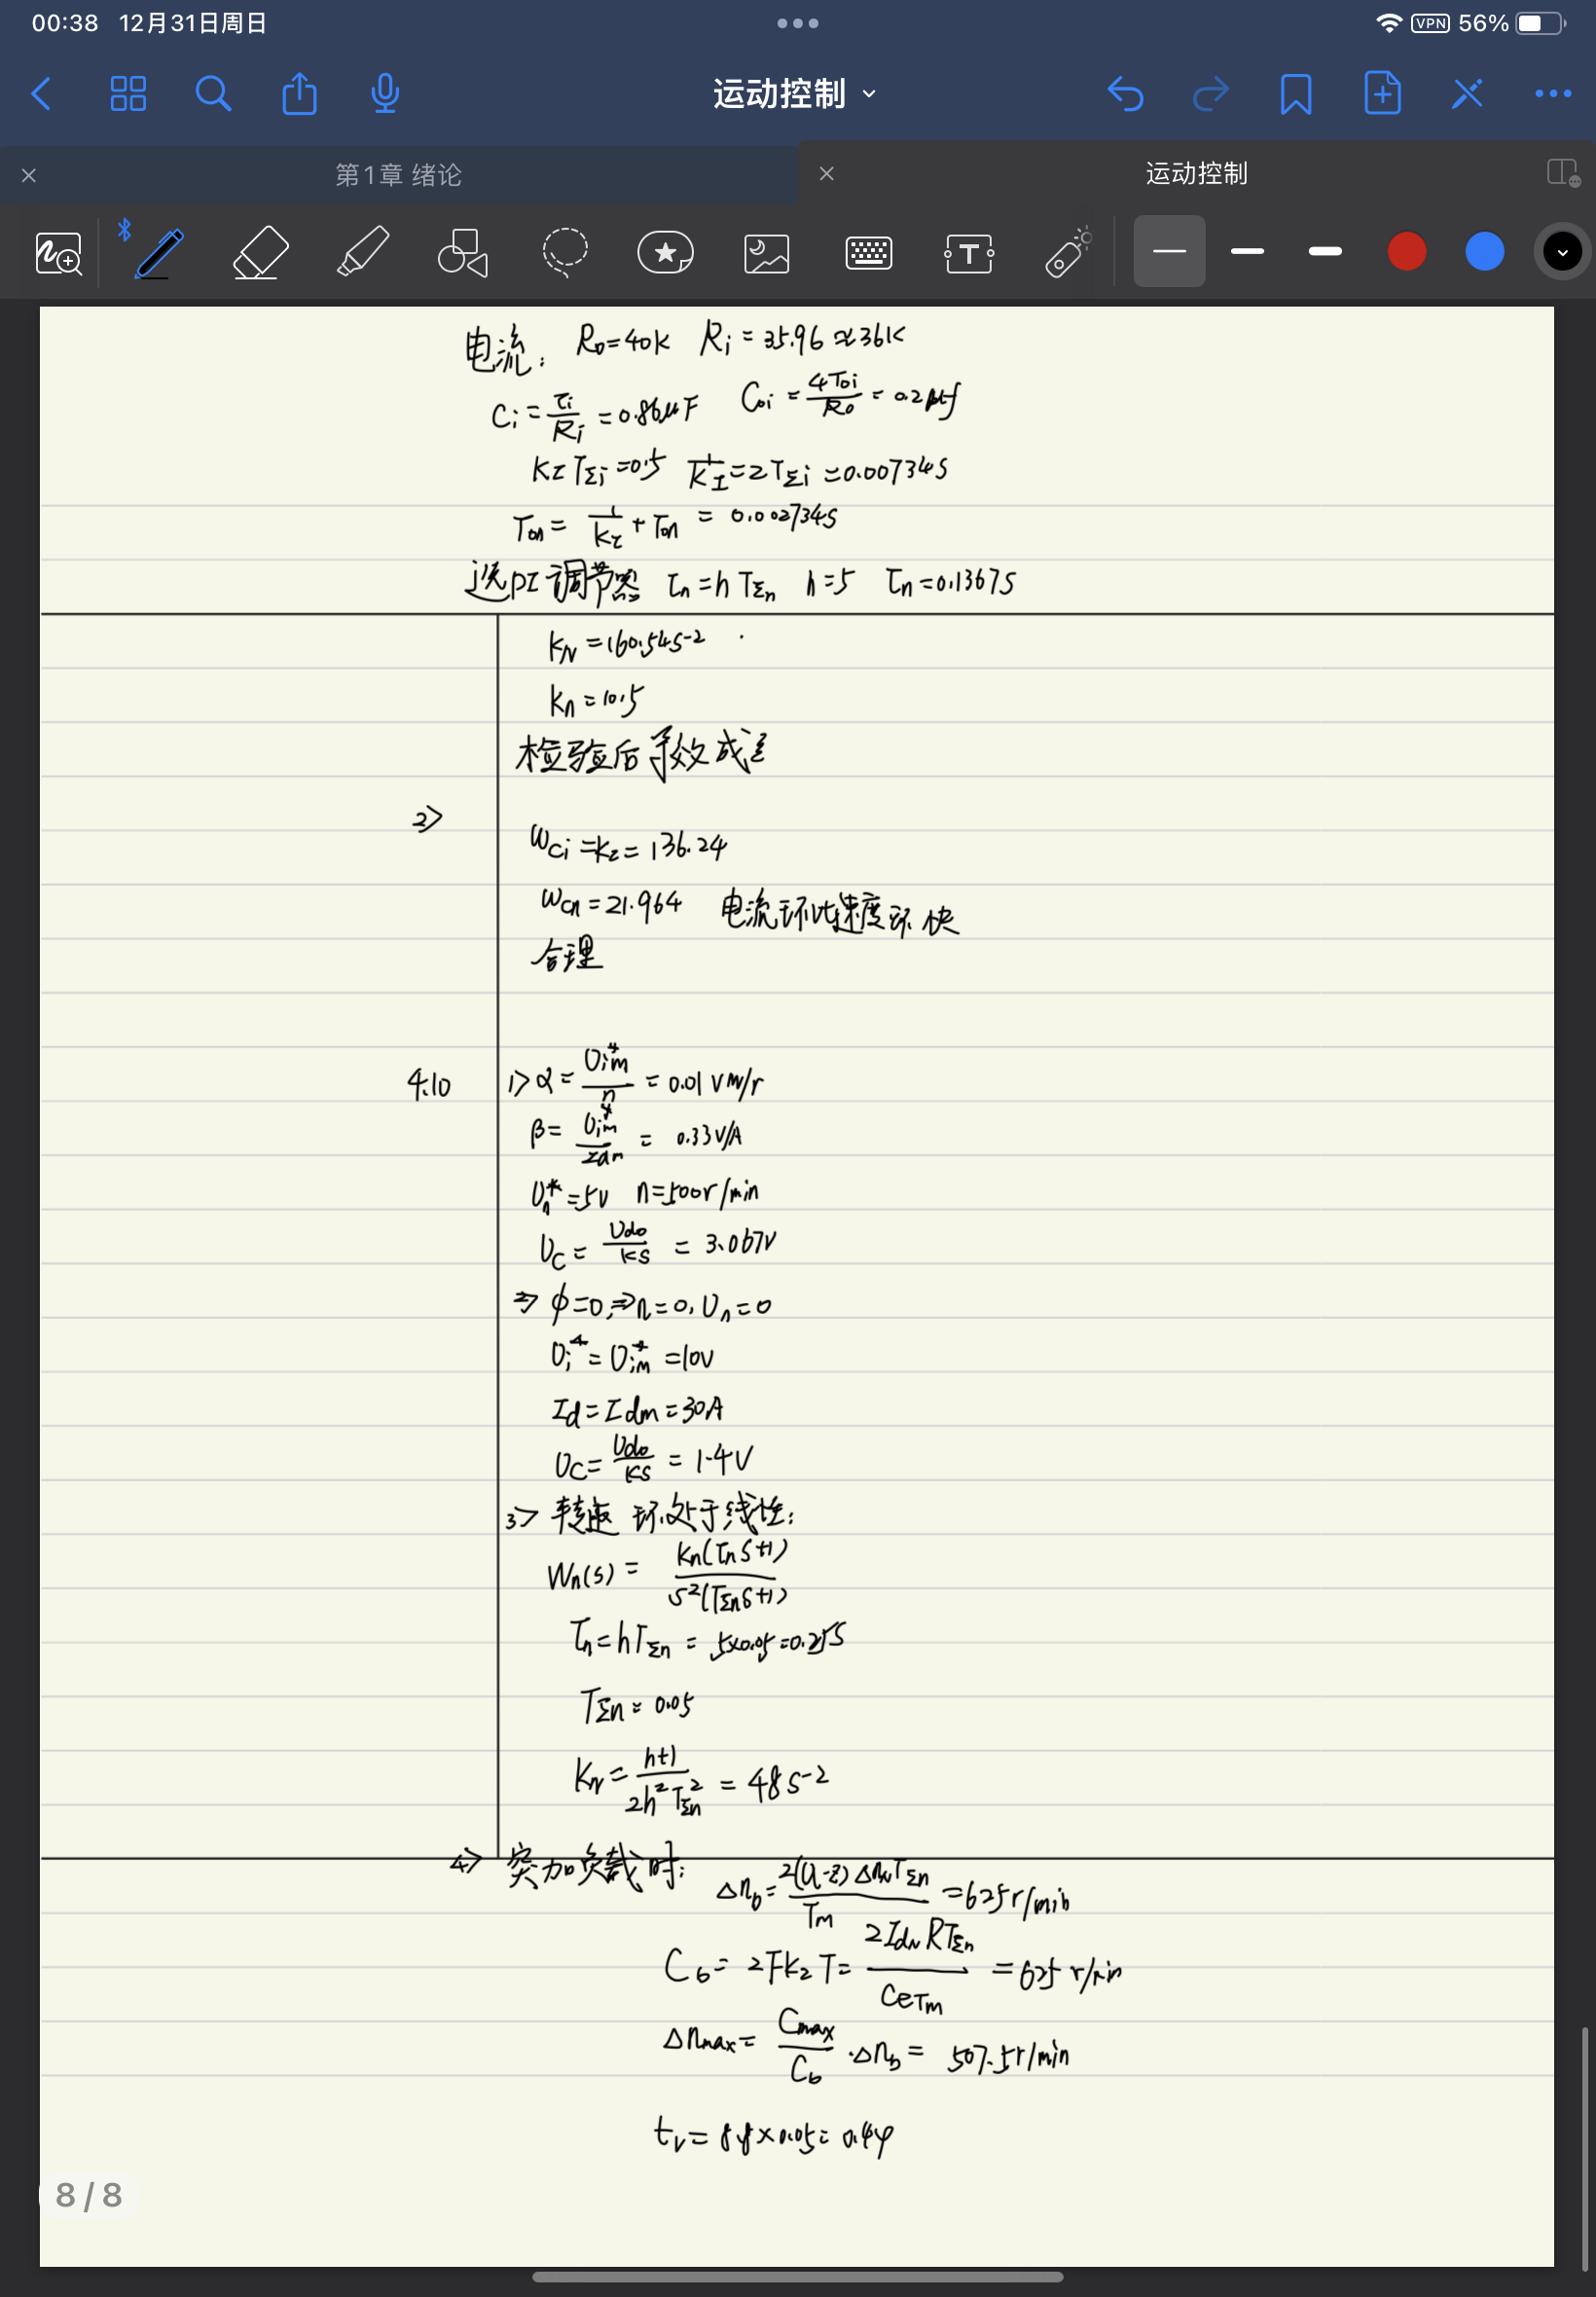 00:38 12月31日周日
VPN 56%
运动控制
第1章 绪论
运动控制
T
电流: R₀=40K Rᵢ=35.96≈36K
Cᵢ=τᵢ/Rᵢ=0.86μF C₀ᵢ=4T₀ᵢ/R₀=0.2μf
K_I T_Σi=0.5 1/K_I=2T_Σi=0.00734S
T_on=1/K_I+T_on=0.002734S
选PI调节器 τn=hT_Σn h=5 τn=0.1367S
K_N=160.54S⁻²
Kn=10.5
检验后等效成立
2>
W_ci=K_I=136.24
W_cn=21.964 电流环比速度环快
合理
4.10 1> α=U*im/n=0.01VM/r
β=U*im/Idm=0.33V/A
U*n=5V n=500r/min
Uc=Udo/KS=3.067V
2> ϕ=0,⇒n=0,Un=0
Ui*=U*im=10V
Id=Idm=30A
Uc=Udo/KS=1.4V
3> 转速环处于线性:
Wn(s)=Kn(τnS+1)/S²(T_ΣnS+1)
τn=hT_Σn=5×0.05=0.25S
T_Σn=0.05
K_N=h+1/2h²T²_Σn=48S⁻²
4> 突加负载时: Δn_b=2(λ-z)Δn_N T_Σn/Tm=625r/min
C_b=2FK₂T=2I_dN R T_Σn/CeTm=625r/min
Δn_max=C_max/C_b·Δn_b=507.5r/min
t_v=8.8×0.05=0.44
8/8